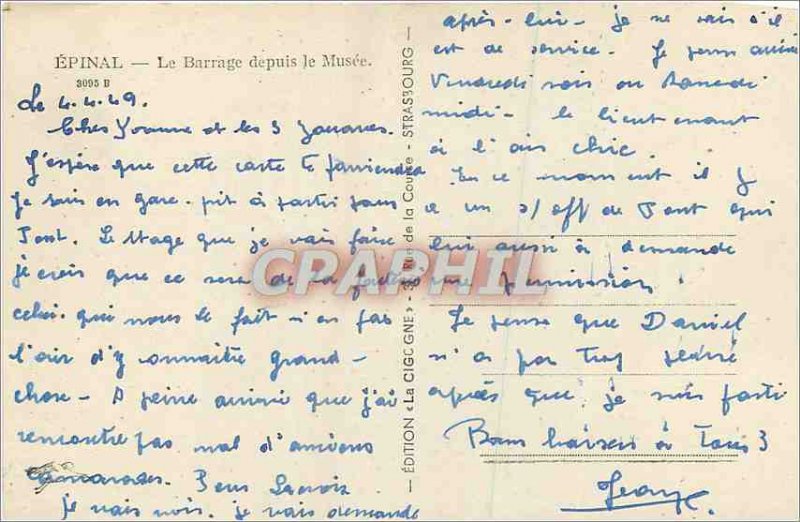 ÉPINAL — Le Barrage depuis le Musée.
3095 B
Le 4.4.49.
Chers Yvonne et les 3
J'espère que cette carte te parviendra
je suis en gare prêt à partir pour
Tont. Le stage que je vais faire
je crois que ce sera de la
celui qui nous le fait n'en pas
l'air d'y connaître grand-
chose - A peine arrivé que j'ai
rencontré pas mal d'anciens
camarades. Bens Lacroix
je vais voir. je vais demande
ÉDITION «La CIGOGNE» - Rue de la Course - STRASBOURG
après-lui- je ne sais s'il
est de service. Je pense arriver
Vendredi soir ou Samedi
midi- le lieutenant
à l'air chic.
En ce moment il y
a un s/off de Tont qui
lui aussi à demande
une permission.
Je pense que Daniel
n'a pas trop pleuré
après que je suis parti
Bons baisers à Tous 3
Jean
CPAPHIL